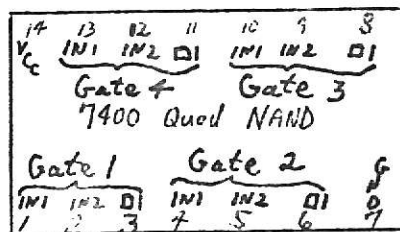 14 13 12 11 10 9 8
Vcc IN1 IN2 O1 IN1 IN2 O1
Gate 4 Gate 3
7400 Quad NAND
Gate 1 Gate 2 GND
IN1 IN2 O1 IN1 IN2 O1
1 2 3 4 5 6 7